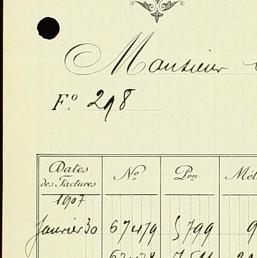 Monsieur
Fº 298
Dates des Factures Nº Pon Mét
1907
Janvier 30 67479 5799 9